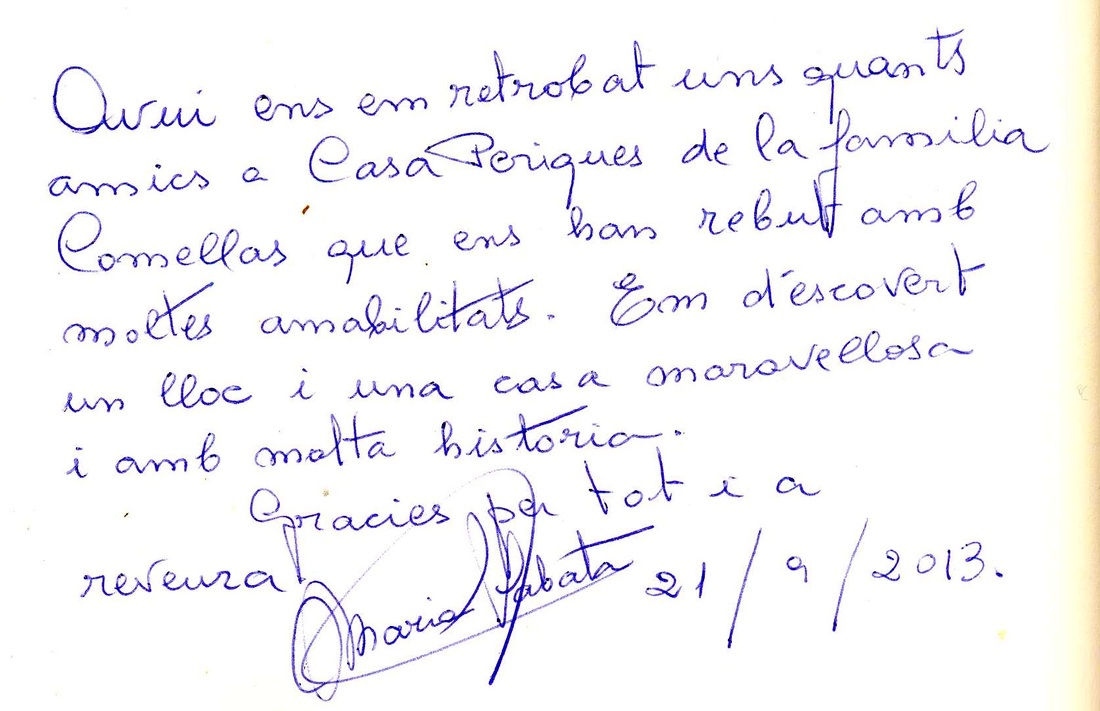 Avui ens em retrobat uns quants
amics a Casa Periques de la família
Comellas que ens han rebut amb
moltes amabilitats. Em d'escovert
un lloc i una casa maravellosa
i amb molta historia.
Gracies per tot i a
reveura!
Maria Sabata 21/9/2013.